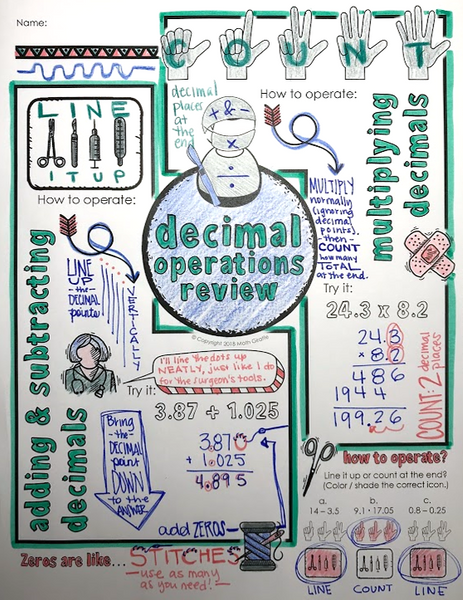 Name:
COUNT
decimal
places
at
the
end
How to operate:
+ & -
×
multiplying
decimals
MULTIPLY
normally
(ignoring
decimal
points).
then
COUNT
how many
TOTAL
at the end.
Try it:
24.3 x 8.2
24.3
× 8.2
486
1944
199.26
COUNT: 2 decimal
places
LINE
IT UP
How to operate:
adding & subtracting
decimals
LINE
UP
the
DECIMAL
points
VERTICALLY
decimal
operations
review
© Copyright 2018 Math Giraffe
I'll line the dots up
NEATLY, just like I do
for the surgeon's tools.
Try it:
3.87 + 1.025
3.870
+ 1.025
4.895
Bring
the
DECIMAL
point
DOWN
to the
ANSWER
add ZEROS
Zeros are like... STITCHES
use as many
as you need!
how to operate?
Line it up or count at the end?
(Color / shade the correct icon.)
a. b. c.
14 – 3.5 9.1 · 17.05 0.8 – 0.25
LINE COUNT LINE